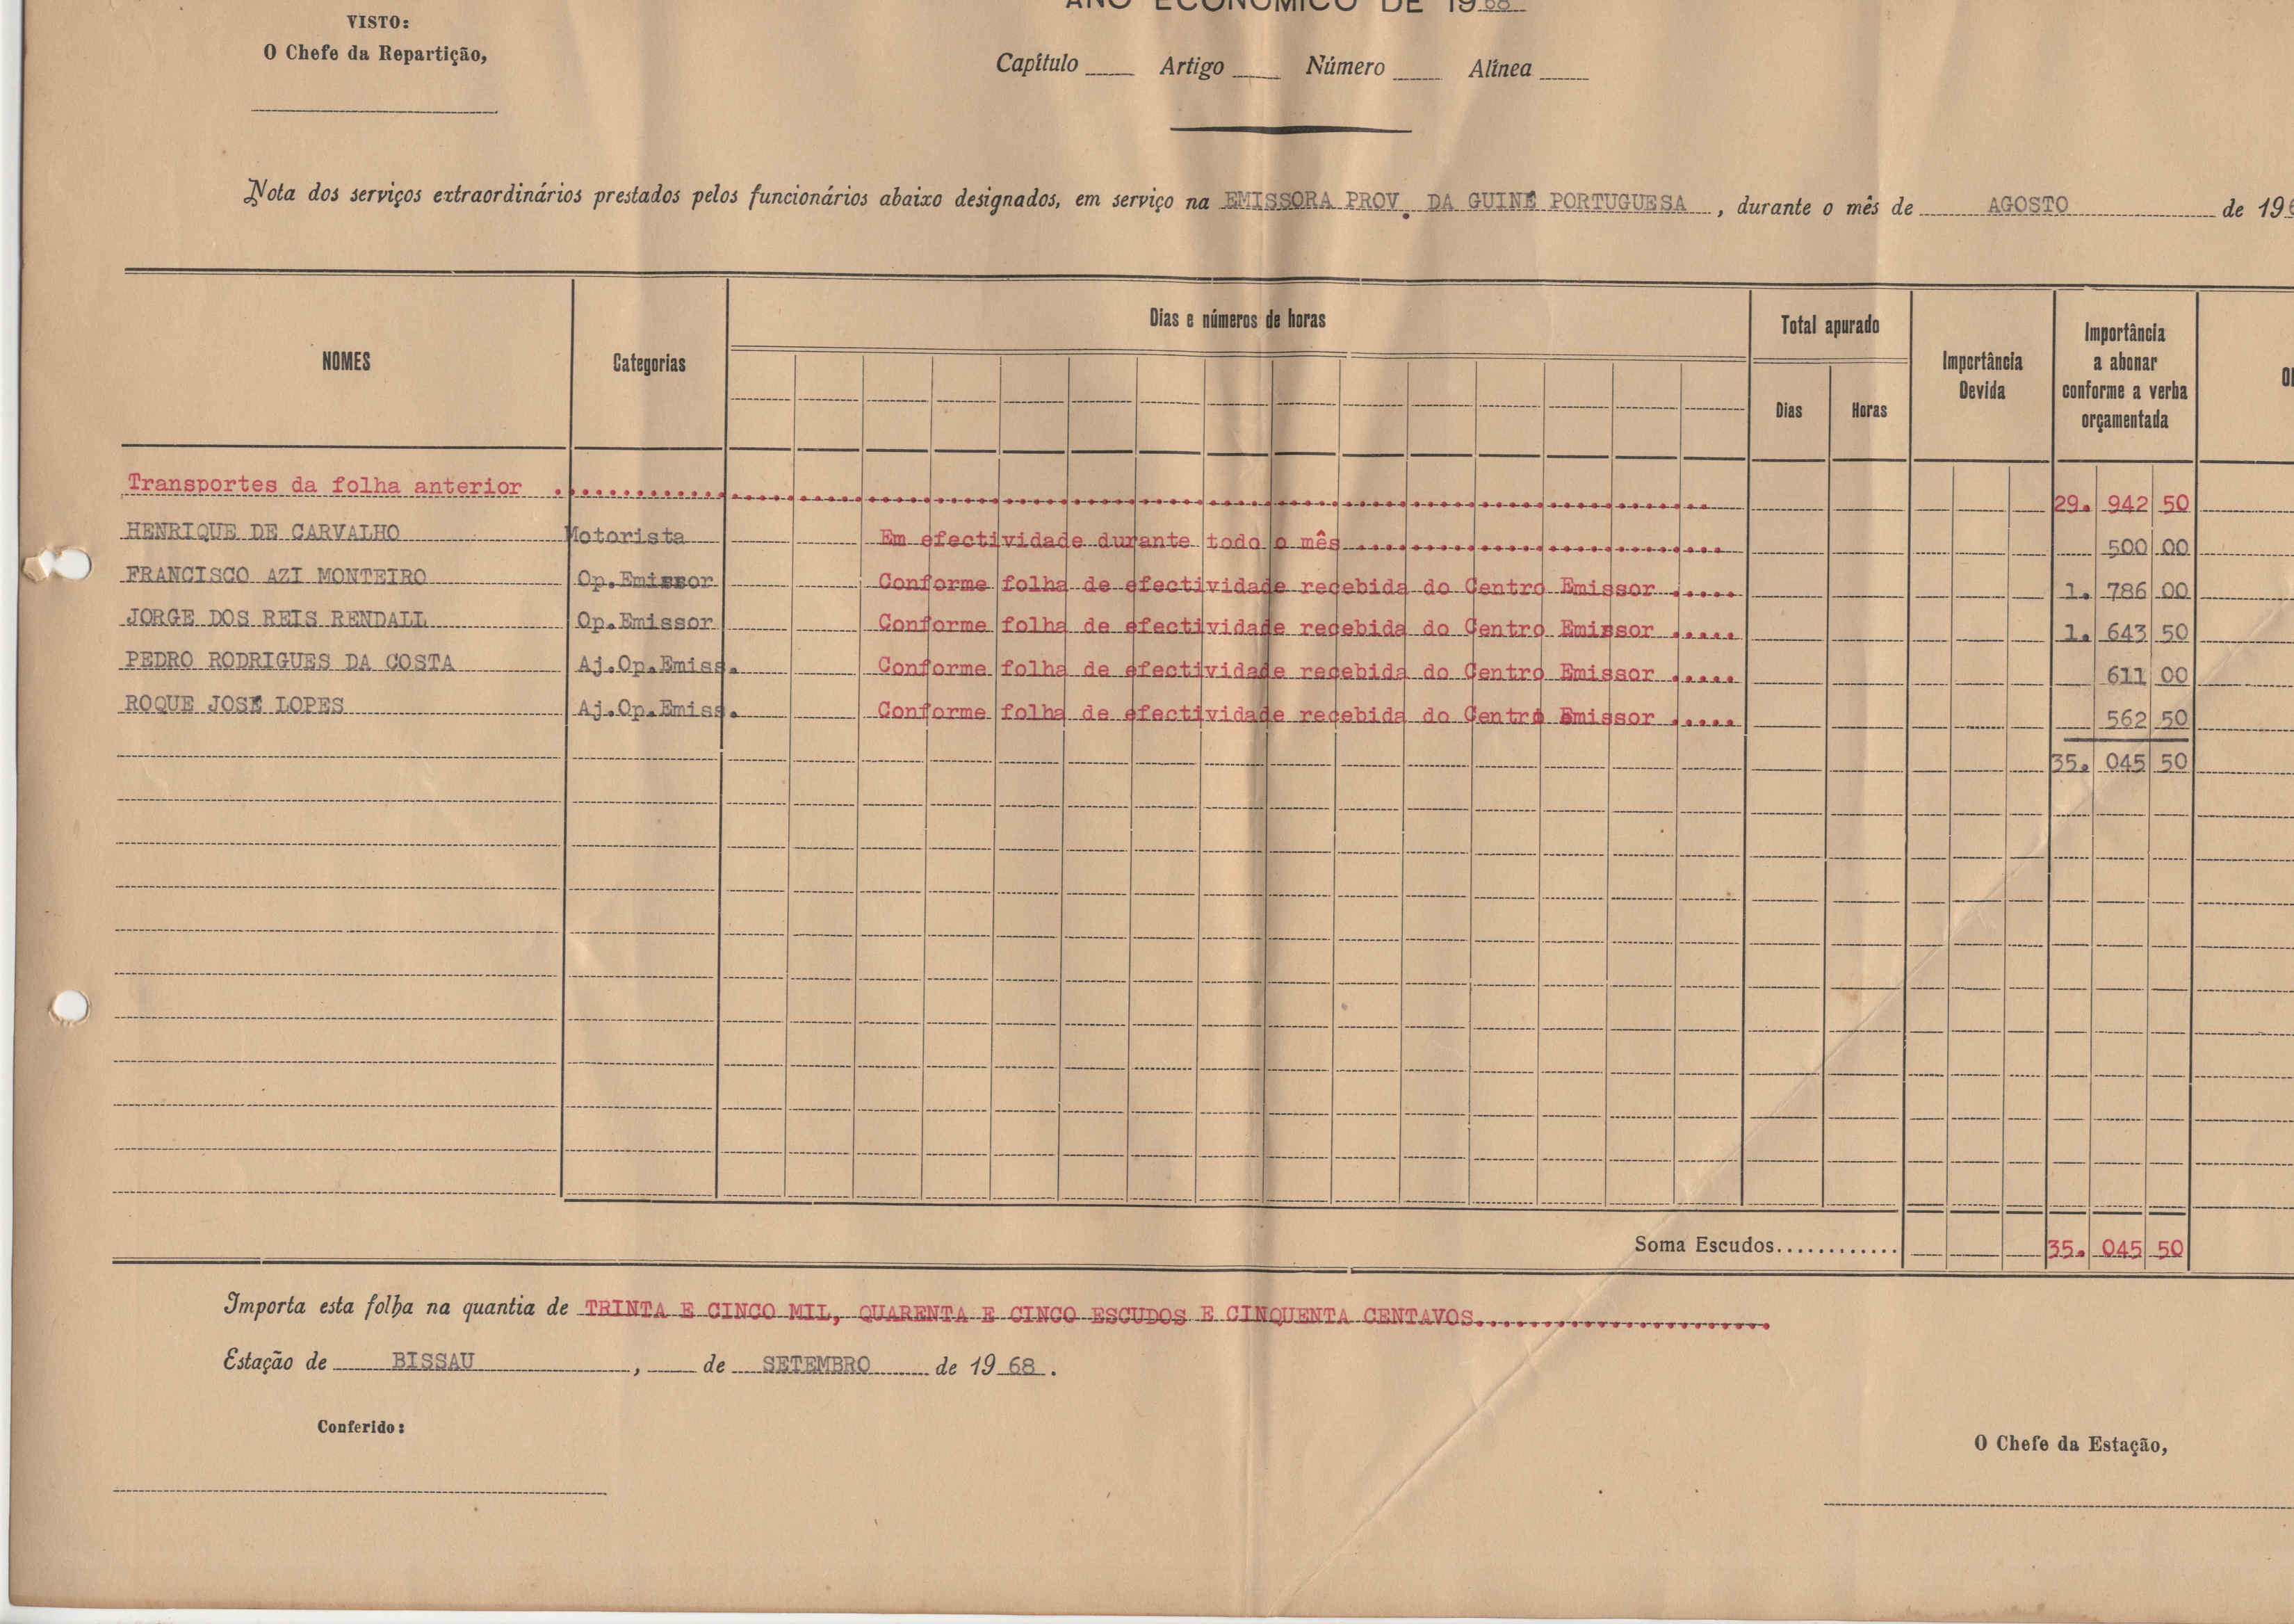 ANO ECONÓMICO DE 1968
VISTO:
O Chefe da Repartição,
Capítulo Artigo Número Alínea
Nota dos serviços extraordinários prestados pelos funcionários abaixo designados, em serviço na EMISSORA PROV. DA GUINÉ PORTUGUESA, durante o mês de AGOSTO de 196
NOMES Categorias Dias e números de horas Total apurado Dias Horas Importância Devida Importância a abonar conforme a verba orçamentada
Transportes da folha anterior .......... 29. 942 50
HENRIQUE DE CARVALHO Motorista Em efectividade durante todo o mês .......... 500 00
FRANCISCO AZI MONTEIRO Op.Emissor Conforme folha de efectividade recebida do Centro Emissor ..... 1. 786 00
JORGE DOS REIS RENDALL Op.Emissor Conforme folha de efectividade recebida do Centro Emissor ..... 1. 643 50
PEDRO RODRIGUES DA COSTA Aj.Op.Emiss. Conforme folha de efectividade recebida do Centro Emissor ..... 611 00
ROQUE JOSÉ LOPES Aj.Op.Emiss. Conforme folha de efectividade recebida do Centro Emissor ..... 562 50
35. 045 50
Soma Escudos............ 35. 045 50
Importa esta folha na quantia de TRINTA E CINCO MIL, QUARENTA E CINCO ESCUDOS E CINQUENTA CENTAVOS......................
Estação de BISSAU, de SETEMBRO de 1968.
Conferido:
O Chefe da Estação,